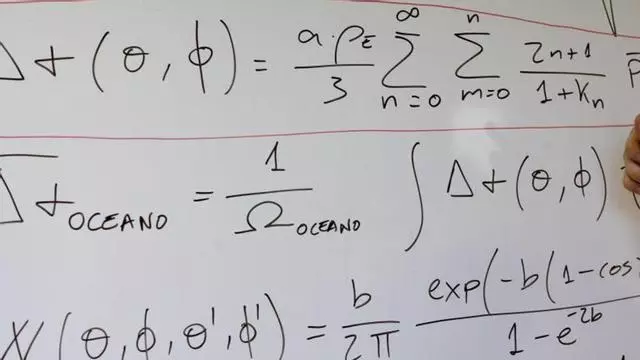 Δ+(θ,ϕ) = a·ρ_E/3 ∞∑n=0 n∑m=0 2n+1/1+K_n P
Δ+_OCEANO = 1/Ω_OCEANO ∫Δ+(θ,ϕ)
W(θ,ϕ,θ',ϕ') = b/2π exp(-b(1-cos/1-e^-2b